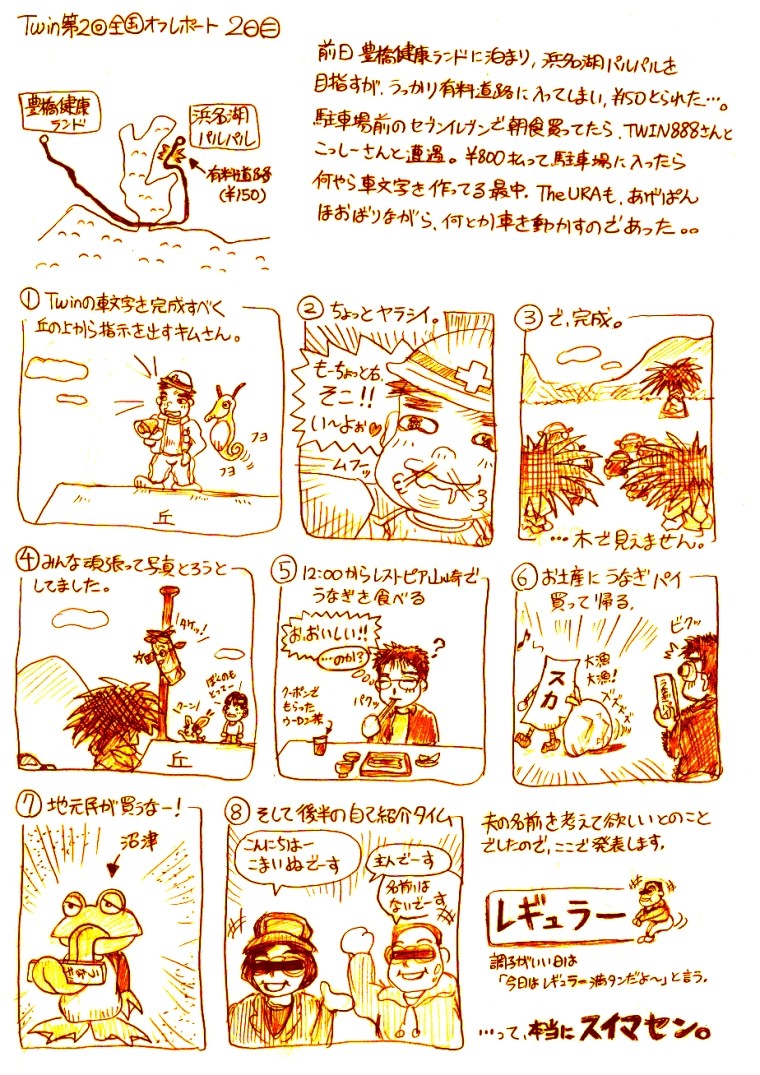 Twin第2回全国オフレポート 2日目
豊橋健康
ランド
浜名湖
パルパル
有料道路
(¥150)
前日豊橋健康ランドに泊まり、浜名湖パルパルを
目指すが、うっかり有料道路に入ってしまい、¥150とられた…。
駐車場前のセブンイレブンで朝食買ってたら、TWIN888さんと
こっしーさんと遭遇。¥800払って駐車場に入ったら
何やら車文字を作ってる最中。The URAも、あげぱん
ほおばりながら、何とか車を動かすのであった。。
① Twinの車文字を完成すべく
丘の上から指示を出すキムさん。
フヨ
フヨ
丘
② ちょっとヤラシイ。
もーちょっと右、
そこ!!
い〜よぉ♡
ムフッ
③ で、完成。
…木で見えません。
④ みんな頑張って写真とろうと
してました。
ぼくのも
とってー
丘
⑤ 12:00からレストピア山崎で
うなぎを食べる
お、おいしい!!
…のか?
?
パクッ
クーポンで
もらった
ウーロン茶
⑥ お土産にうなぎパイ
買って帰る。
♪
スカ
大漁
大漁!
ズズズズ
ビクッ
⑦ 地元民が買うなー!
沼津
⑧ そして後半の自己紹介タイム
こんにちはー
こまいぬでーす
主人でーす
名前は
ないでーす
夫の名前を考えて欲しいとのこと
でしたので、ここで発表します。
レギュラー
調子がいい日は
「今日はレギュラー満タンだよ〜」と言う。
…って、本当にスイマセン。